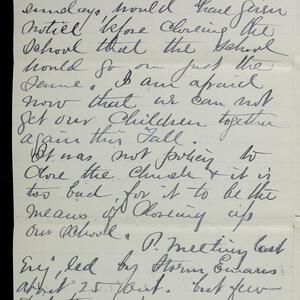 sundays would have given
notice before closing the
School that the School
would go on just the
same. I am afraid
now that we can not
get our Children together
again this Fall.
It was not policy to
Close the Church & it is
too bad for it to be the
means of Closing up
our School.
P. Meeting last
Eve, led by Storm Emans
about 25 pent. but few